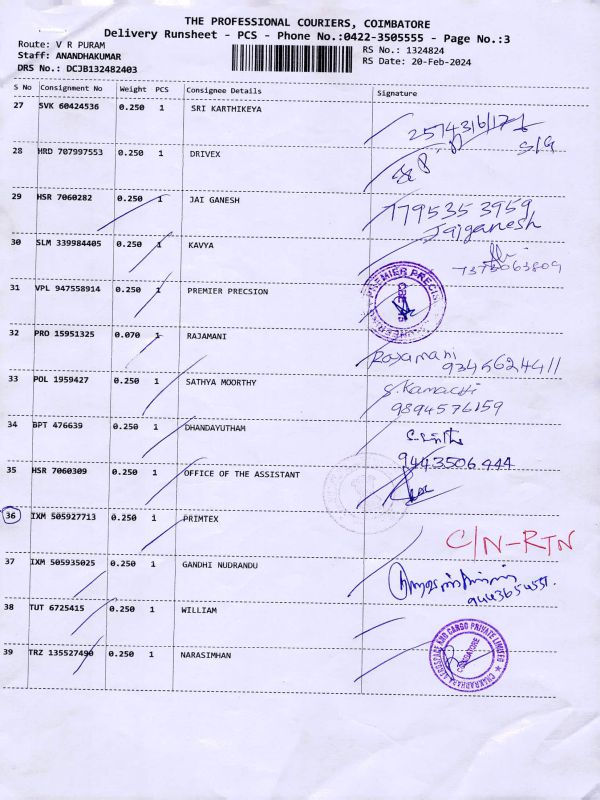 THE PROFESSIONAL COURIERS, COIMBATORE
Delivery Runsheet - PCS - Phone No.:0422-3505555 - Page No.:3
Route: V R PURAM
RS No.: 1324824
Staff: ANANDHAKUMAR
RS Date: 20-Feb-2024
DRS No.: DCJB132482403
S No Consignment No Weight PCS Consignee Details Signature
27 SVK 60424536 0.250 1 SRI KARTHIKEYA
28 HRD 707997553 0.250 1 DRIVEX
29 HSR 7060282 0.250 1 JAI GANESH 7795353959
Jaiganesh
30 SLM 339984405 0.250 1 KAVYA 7373063809
31 VPL 947558914 0.250 1 PREMIER PRECSION PREMIER PRECISE
32 PRO 15951325 0.070 1 RAJAMANI Rajamani
9345624411
33 POL 1959427 0.250 1 SATHYA MOORTHY S. Kamachi
9894576159
34 BPT 476639 0.250 1 DHANDAYUTHAM
9443506444
35 HSR 7060309 0.250 1 OFFICE OF THE ASSISTANT
36 IXM 505927713 0.250 1 PRIMTEX C/N-RTN
37 IXM 505935025 0.250 1 GANDHI NUDRANDU
38 TUT 6725415 0.250 1 WILLIAM
39 TRZ 135527490 0.250 1 NARASIMHAN CHAKRADHARA AEROSPACE AND CARGO PRIVATE LIMITED COIMBATORE